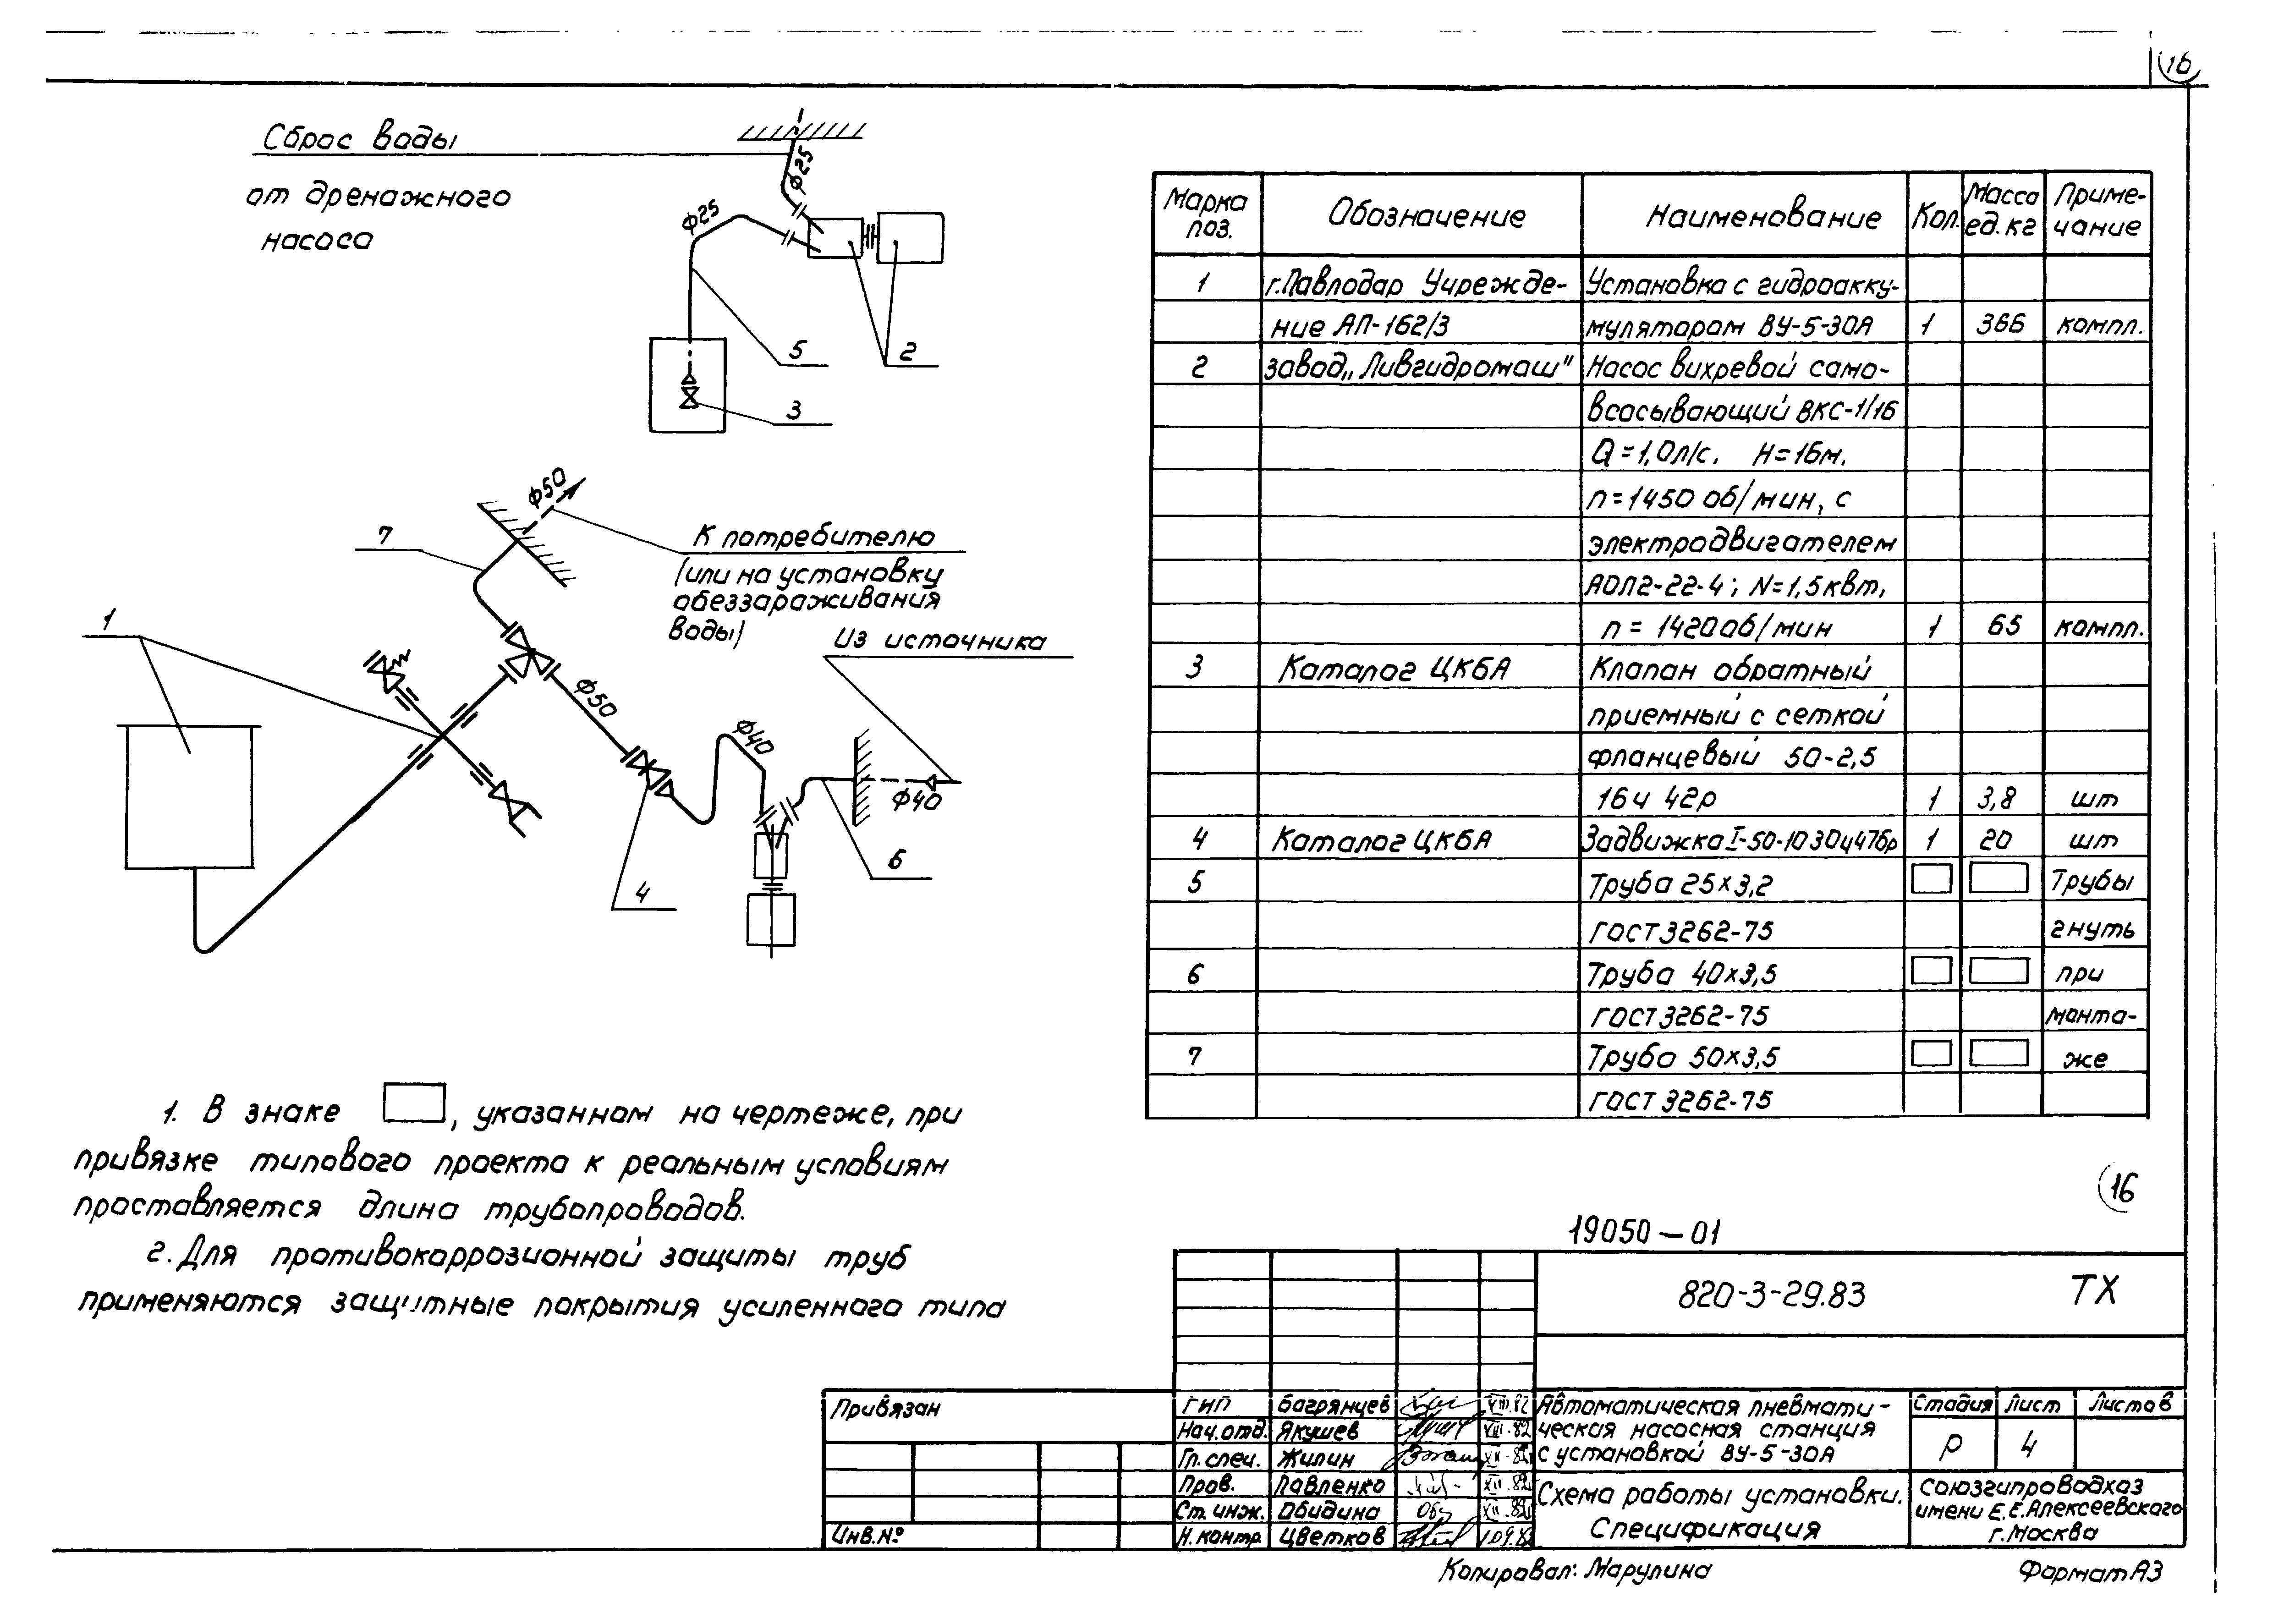 16
Сброс воды
от дренажного
насоса
ф25
ф25
5
2
3
ф50
7
К потребителю
(или на установку
обеззараживания
воды)
1
Из источника
ф50
ф40
ф40
4
6
Марка поз. Обозначение Наименование Кол. Масса ед. кг Приме-чание
1 г.Павлодар Учрежде- Установка с гидроакку-
ние АП-162/3 мулятором ВУ-5-30А 1 366 компл.
2 завод „Ливгидромаш" Насос вихревой само-
всасывающий ВКС-1/16
Q=1,0л/с. Н=16м.
n=1450 об/мин, с
электродвигателем
АОЛ2-22-4; N=1,5квт,
n=1420об/мин 1 65 компл.
3 Каталог ЦКБА Клапан обратный
приемный с сеткой
фланцевый 50-2,5
16ч 42р 1 3,8 шт
4 Каталог ЦКБА Задвижка I-50-10 30ч47бр 1 20 шт
5 Труба 25х3,2 Трубы
ГОСТ 3262-75 гнуть
6 Труба 40х3,5 при
ГОСТ 3262-75 монта-
7 Труба 50х3,5 же
ГОСТ 3262-75
1. В знаке , указанном на чертеже, при
привязке типового проекта к реальным условиям
проставляется длина трубопроводов.
2. Для противокоррозионной защиты труб
применяются защитные покрытия усиленного типа
16
19050-01
820-3-29.83 ТХ
Привязан
Инв.№
ГИП Багрянцев XII.82
Нач.отд. Якушев XII.82
Гл.спец. Жилин XII.82
Пров. Павленко XII.82
Ст.инж. Обидина XII.82
Н.контр. Цветков
Автоматическая пневмати-
ческая насосная станция
с установкой ВУ-5-30А
Стадия Лист Листов
Р 4
Схема работы установки.
Спецификация
Союзгипроводхоз
имени Е.Е.Алексеевского
г.Москва
Копировал: Марулина
Формат А3